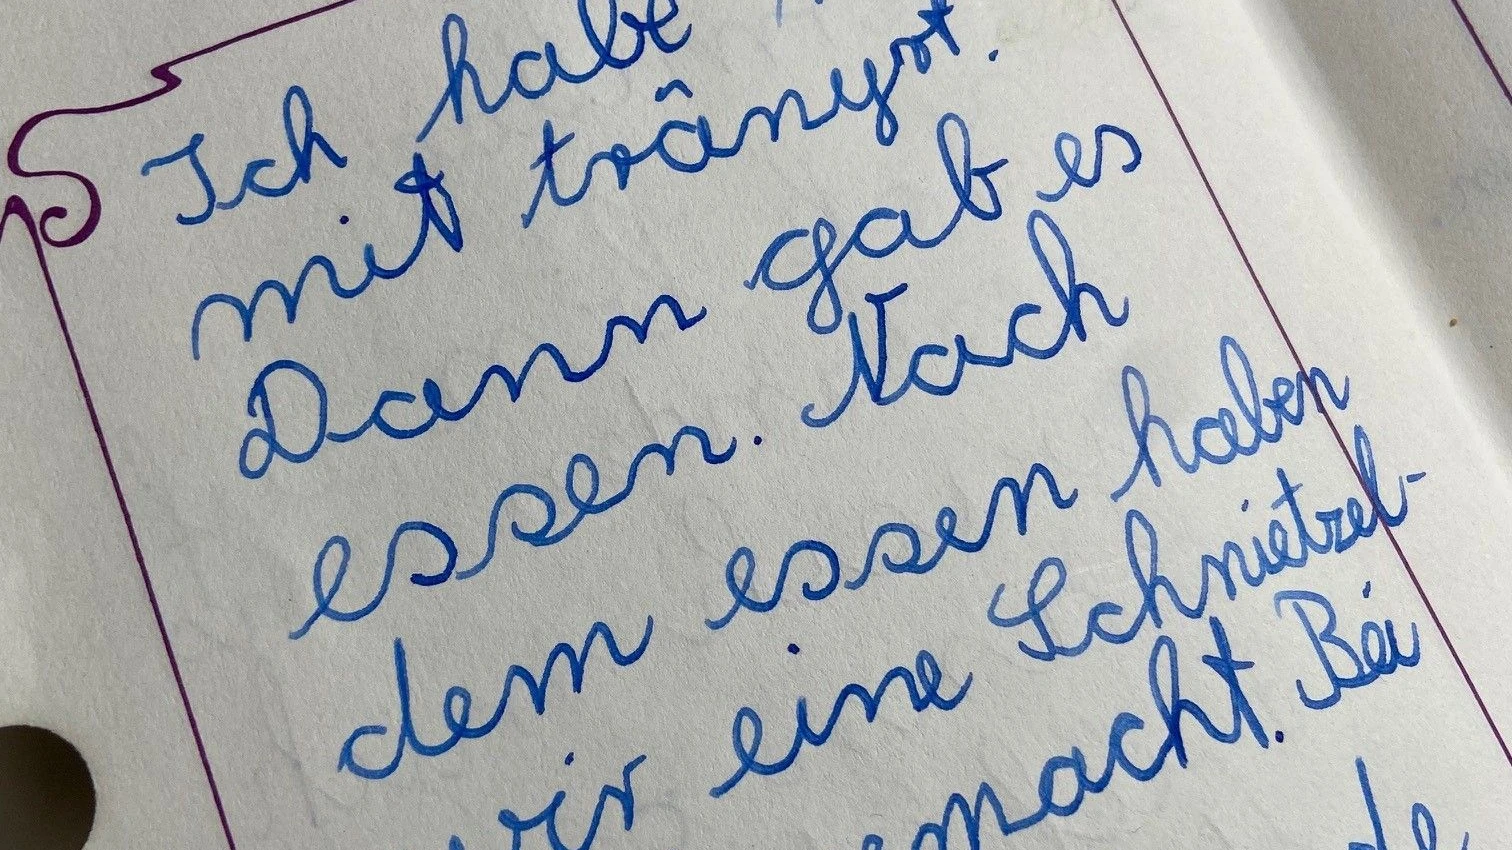 Ich habe
mit
Dann gab es
essen. Nach
dem essen haben
wir eine Schnietzel-
macht. Bei
de